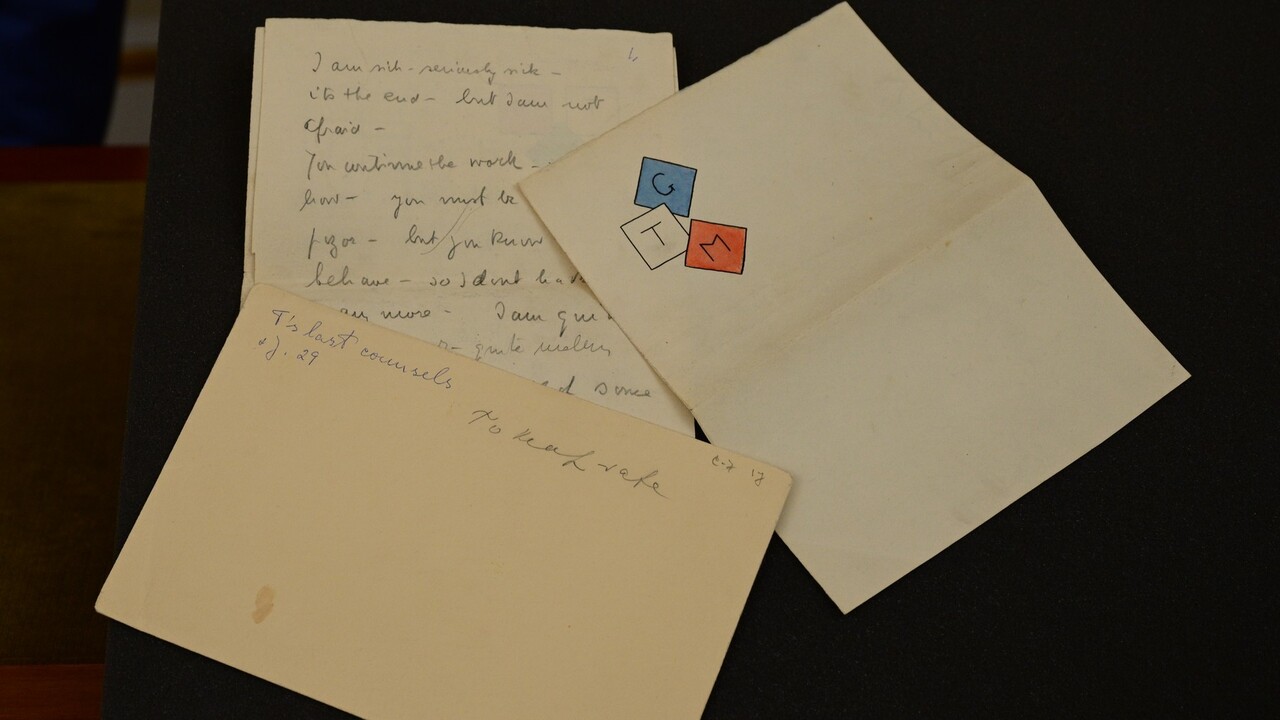 I am sick - seriously sick -
its the end - but I am not
afraid -
You continue the work -
how - you must be
but you know
behave - so I dont have
any more - I am qui
- quite
some
G
T
M
T's last counsels
J. 29
To Keep safe